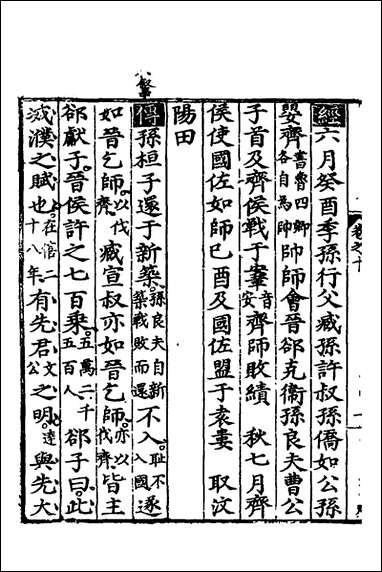 鞌
卷之十
經 六月癸酉季孫行父臧孫許叔孫僑如公孫
嬰齊書魯四卿各自為帥帥師會晉郤克衛孫良夫曹公
子首及齊侯戰于鞌音安齊師敗績 秋七月齊
侯使國佐如師己酉及國佐盟于袁婁 取汶
陽田
傳 孫桓子還于新築。孫良夫自新築戰敗而還不入。耻不入國遂
如晉乞師。以伐齊臧宣叔亦如晉乞師。亦以伐齊皆主
郤獻子。晉侯許之七百乘。五萬二千五百人郤子曰。此
城濮之賦也。在僖二十八年有先君文公之明。達與先大